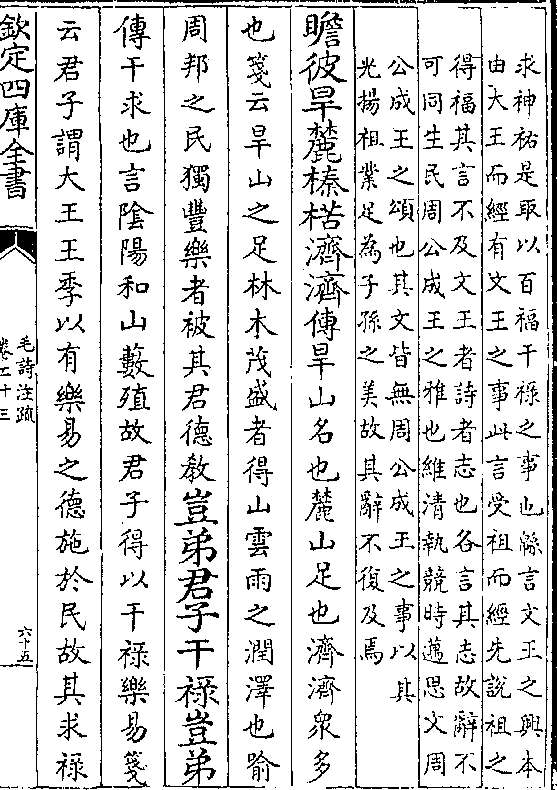 求神祐是取以百福干祿之事也緜言文王之興本
由大王而經有文王之事此言受祖而經先說祖之
得福其言不及文王者詩者志也各言其志故辭不
可同生民周公成王之雅也維清執競時邁思文周
公成王之頌也其文皆無周公成王之事以其
光揚祖業足為子孫之美故其辭不復及焉
瞻彼旱麓榛楛濟濟傳旱山名也麓山足也濟濟眾多
也箋云旱山之足林木茂盛者得山雲雨之潤澤也喻
周邦之民獨豐樂者被其君德教豈弟君子干祿豈弟
傳干求也言陰陽和山藪殖故君子得以干祿樂易箋
云君子謂大王王季以有樂易之德施於民故其求祿
欽定四庫全書
毛詩注疏
卷二十三
六十五